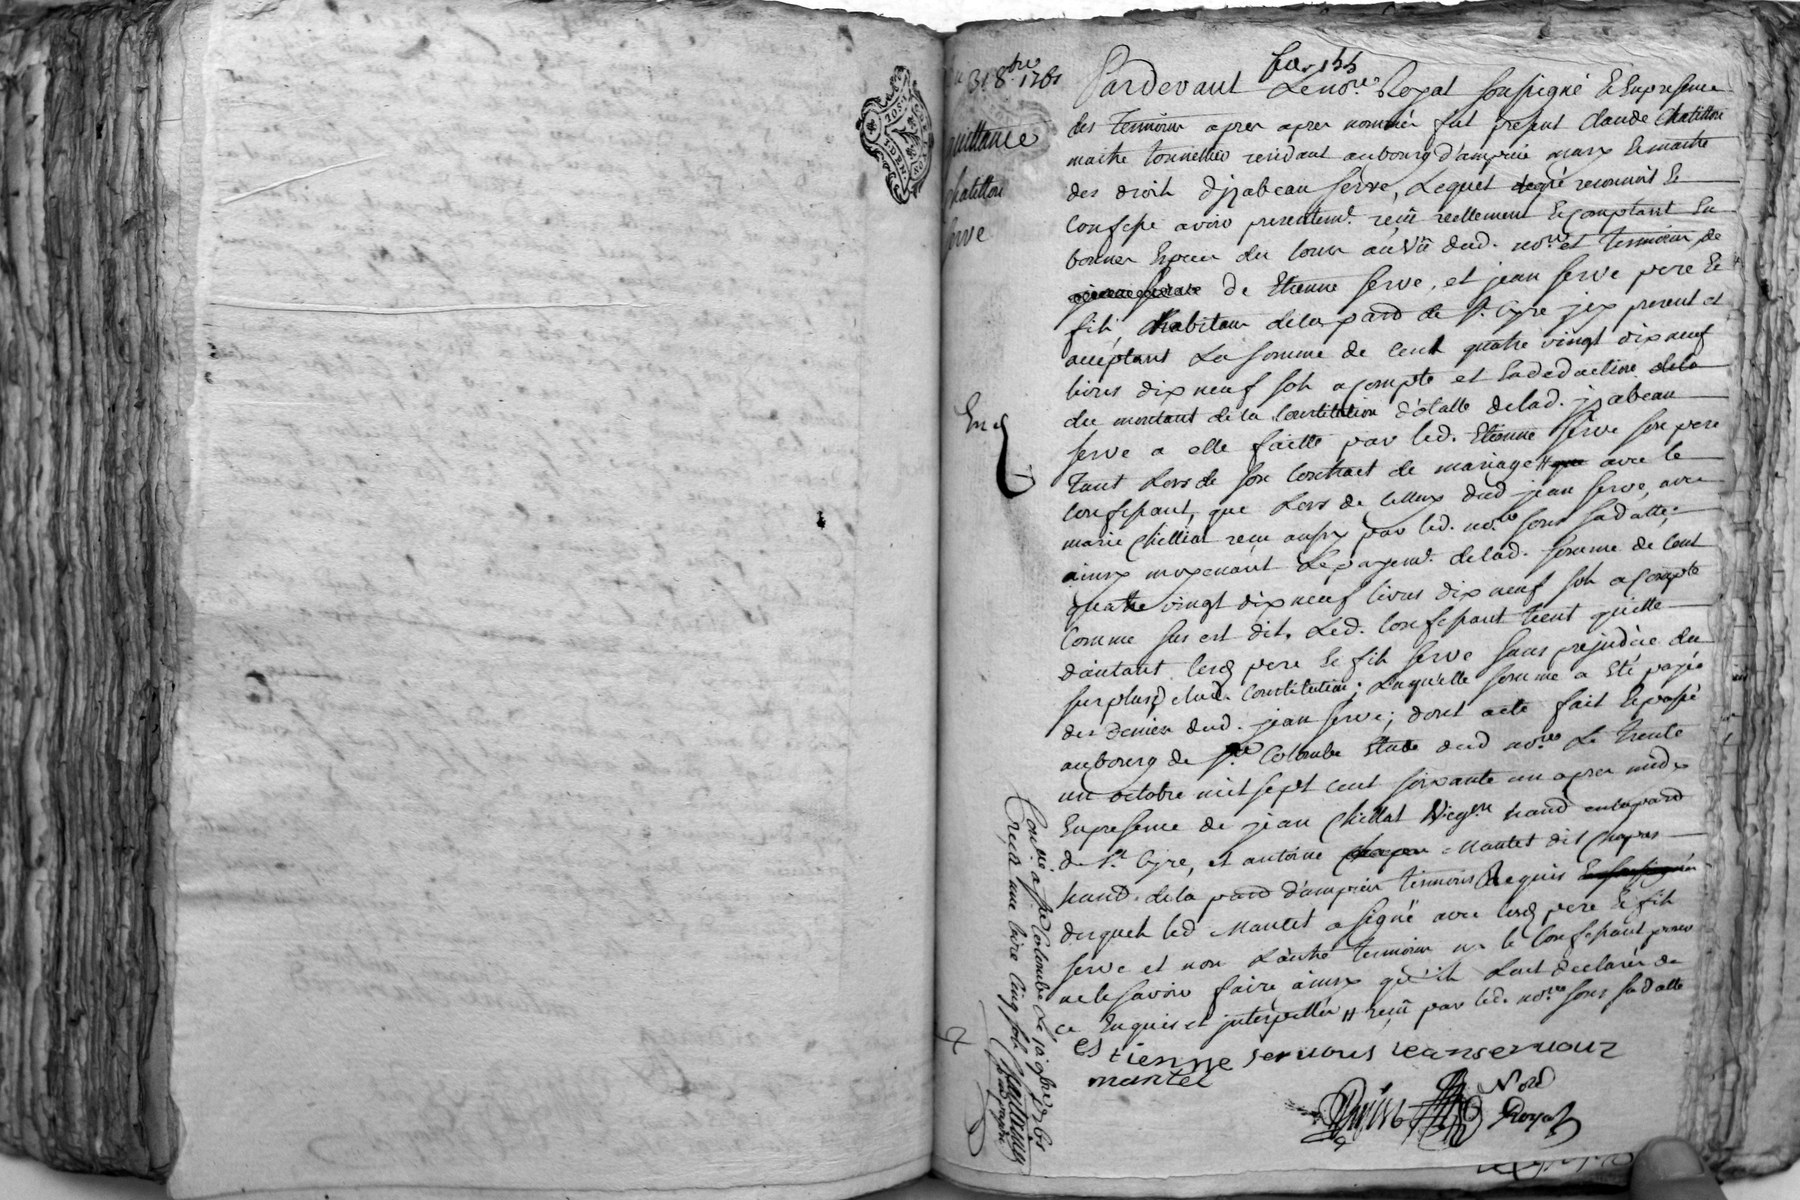 31 8bre 1761
quittance
chatillon
serve
Pardevant Le nore Royal soussigné Et En presence
des temoins apres apres nommés fut present claude Chatillon
maitre tonnellier residant au bourg d'ampuis mary Et maitre
des droits d'jzabeau serve, Lequel reconnoit Et
confesse avoir presentemt. reçu reellement Et comptant En
bonnes Especes du cours au vû dud. nore et temoins de
de Etienne serve, et jean serve pere Et
fils habitans de la paroisse de St. Cyre jcy present et
acceptant La somme de cent quatre vingt dix neuf
livres dix neuf sols a compte et En deduction
du montant de la Constitution dotalle de lad. jzabeau
serve a elle faitte par led. Etienne serve son pere
tant Lors de son contract de mariage avec le
confessant, que Lors de celluy dud jean serve, avec
marie Chillia reçu aussy par led. nore sous sa datte;
ainsy moyenant Le payemt. de lad. somme de cent
quatre vingt dix neuf livres dix neuf sols a compte
comme sus est dit, Led. confessant tient quitte
d'autant lesd pere Et fils serve sans prejudice du
surplus de lad. Constitution; Laquelle somme a Eté payée
des deniers dud. jean serve; dont acte fait Et passé
au bourg de Ste Colombe Etude dud nore Le trente
un octobre mil sept cent soixante un apres midy
En presence de jean Chillat Vigron hand en la pard
de St. Cyre, et antoine Mantet dit Chapas
hand. de la pard d'ampuis temoins Requis
desquels led Mantet a signé avec lesd pere Et fils
serve et non L'autre temoin ny le Confessant pour
ne le savoir faire ainsy qu'ils L'ont declarés de
ce Enquis et jnterpellés # reçu par led. nore sous sa datte
Estienne servous jean servouz
mantel
Nore
Royal
Con.lé a Ste Colombe Le 10 9bre 1761
Reçu une livre cinq sols